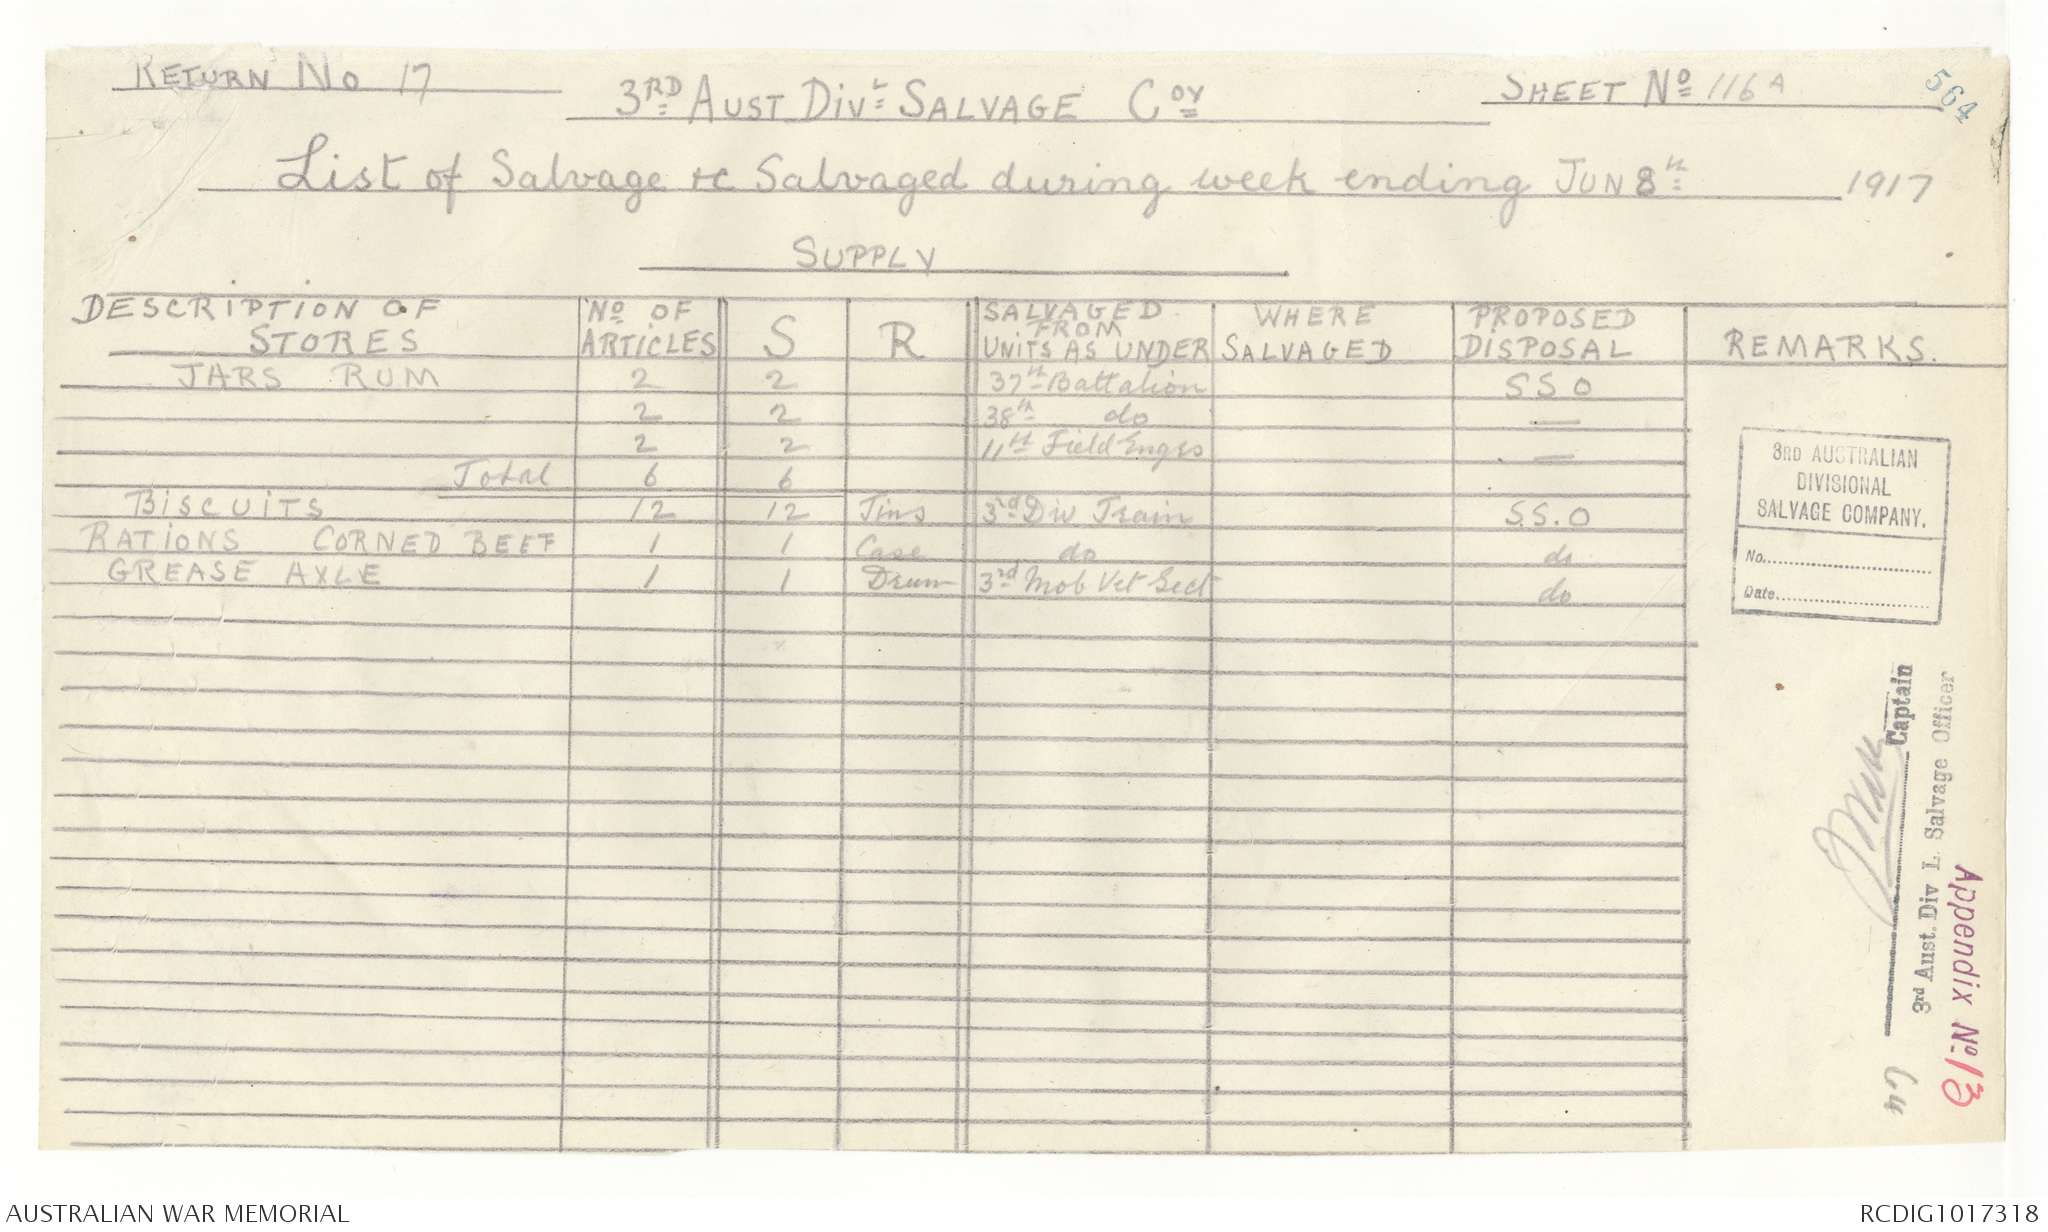 RETURN No 17
3RD AUST DIVL SALVAGE COY
SHEET No 116A
564
List of Salvage &c Salvaged during week ending JUN 8th 1917
SUPPLY
DESCRIPTION OF STORES No OF ARTICLES S R SALVAGED FROM UNITS AS UNDER WHERE SALVAGED PROPOSED DISPOSAL REMARKS.
JARS RUM 2 2 37th Battalion S S O
2 2 38th do —
2 2 11th Field Engrs —
Total 6 6
BISCUITS 12 12 Tins 3rd Div Train S.S.O
RATIONS CORNED BEEF 1 1 Case do do
GREASE AXLE 1 1 Drum 3rd Mob Vet Sect do
3RD AUSTRALIAN
DIVISIONAL
SALVAGE COMPANY.
No.
Date
Captain
3rd Aust. Div L. Salvage Officer
Appendix No. 13
AUSTRALIAN WAR MEMORIAL
RCDIG1017318